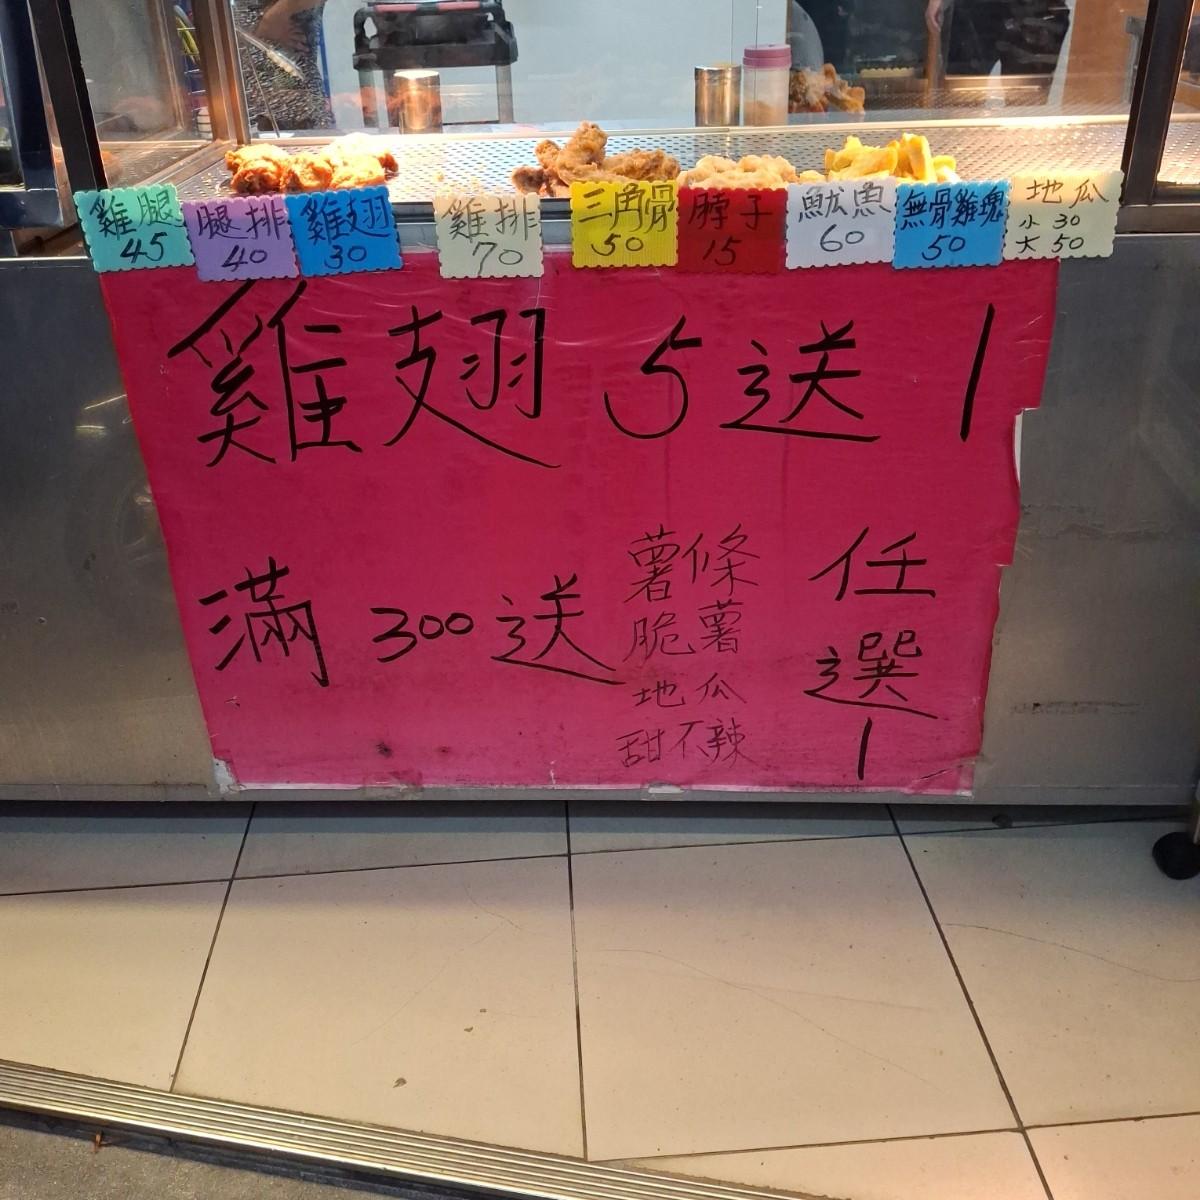 雞腿
45
腿排
40
雞翅
30
雞排
70
三角骨
50
脖子
15
魷魚
60
無骨雞塊
50
地瓜
小 30
大 50
雞翅 5送 1
滿 300送
薯條
脆薯
地瓜
甜不辣
任
選
1